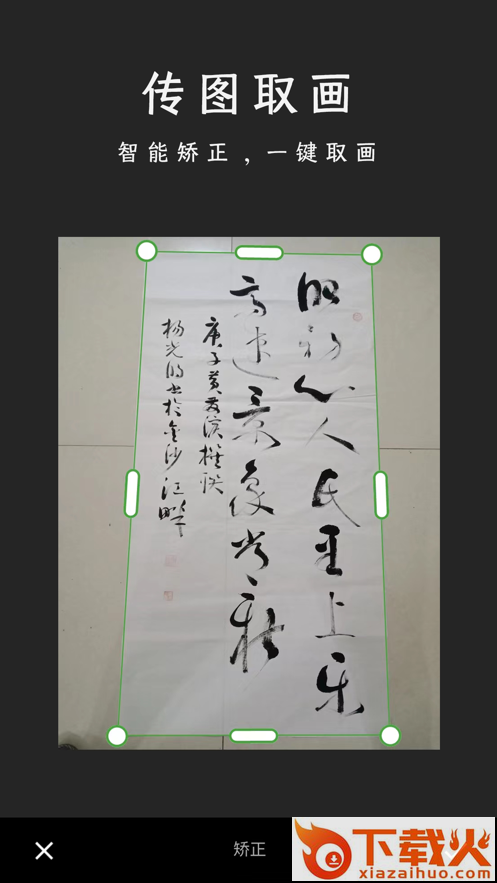 传图取画
智能矫正，一键取画
心人民至上乐
高速景象尚新
庚子黄友滨撰联
杨光明书于金沙江畔
矫正
下载火
xiazaihuo.com